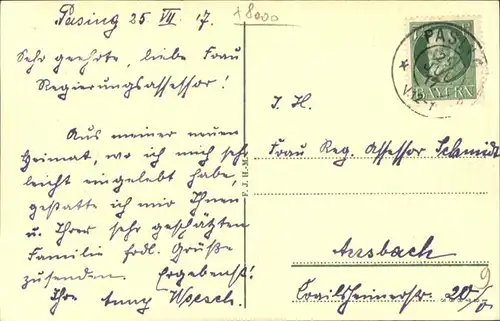 Pasing 25 VII 17.
+8000
Sehr geehrte, liebe Frau
Regierungsassessor!
Aus meiner neuen
Heimat, wo ich mich sehr
leicht eingelebt habe,
gestatte ich mir Ihnen
u. Ihrer sehr geschätzten
Familie frdl. Grüße
zusenden. Ergebenst!
Ihre Anny Woesch.
F. J. H. M.
PASING
BAYERN
I. H.
Frau Reg. Assessor Schmidt
Ansbach
Crailsheimerstr. 20/0.